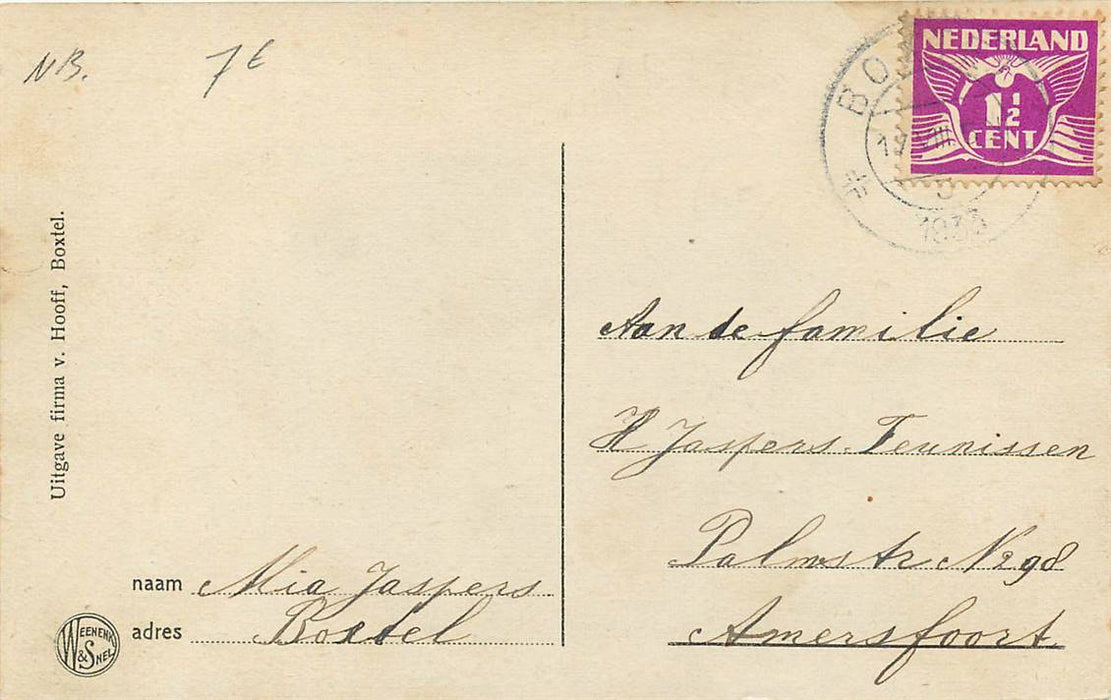 NB.
7 €
NEDERLAND
1½
CENT
BO
19 VIII
5
1933
Uitgave firma v. Hooff, Boxtel.
Aan de familie
H Jaspers-Teunissen
Palmstr No 98
Amersfoort
naam Mia Jaspers
adres Boxtel
WEENENK
& SNEL